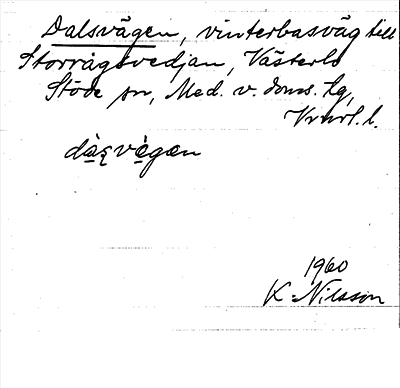 Dalsvägen, vinterbasväg till
Storrågsvedjan, Västerlo
Stöde sn, Med. v. doms. tg,
Vrnrl. l.
dàsvègæn
1960
K. Nilsson